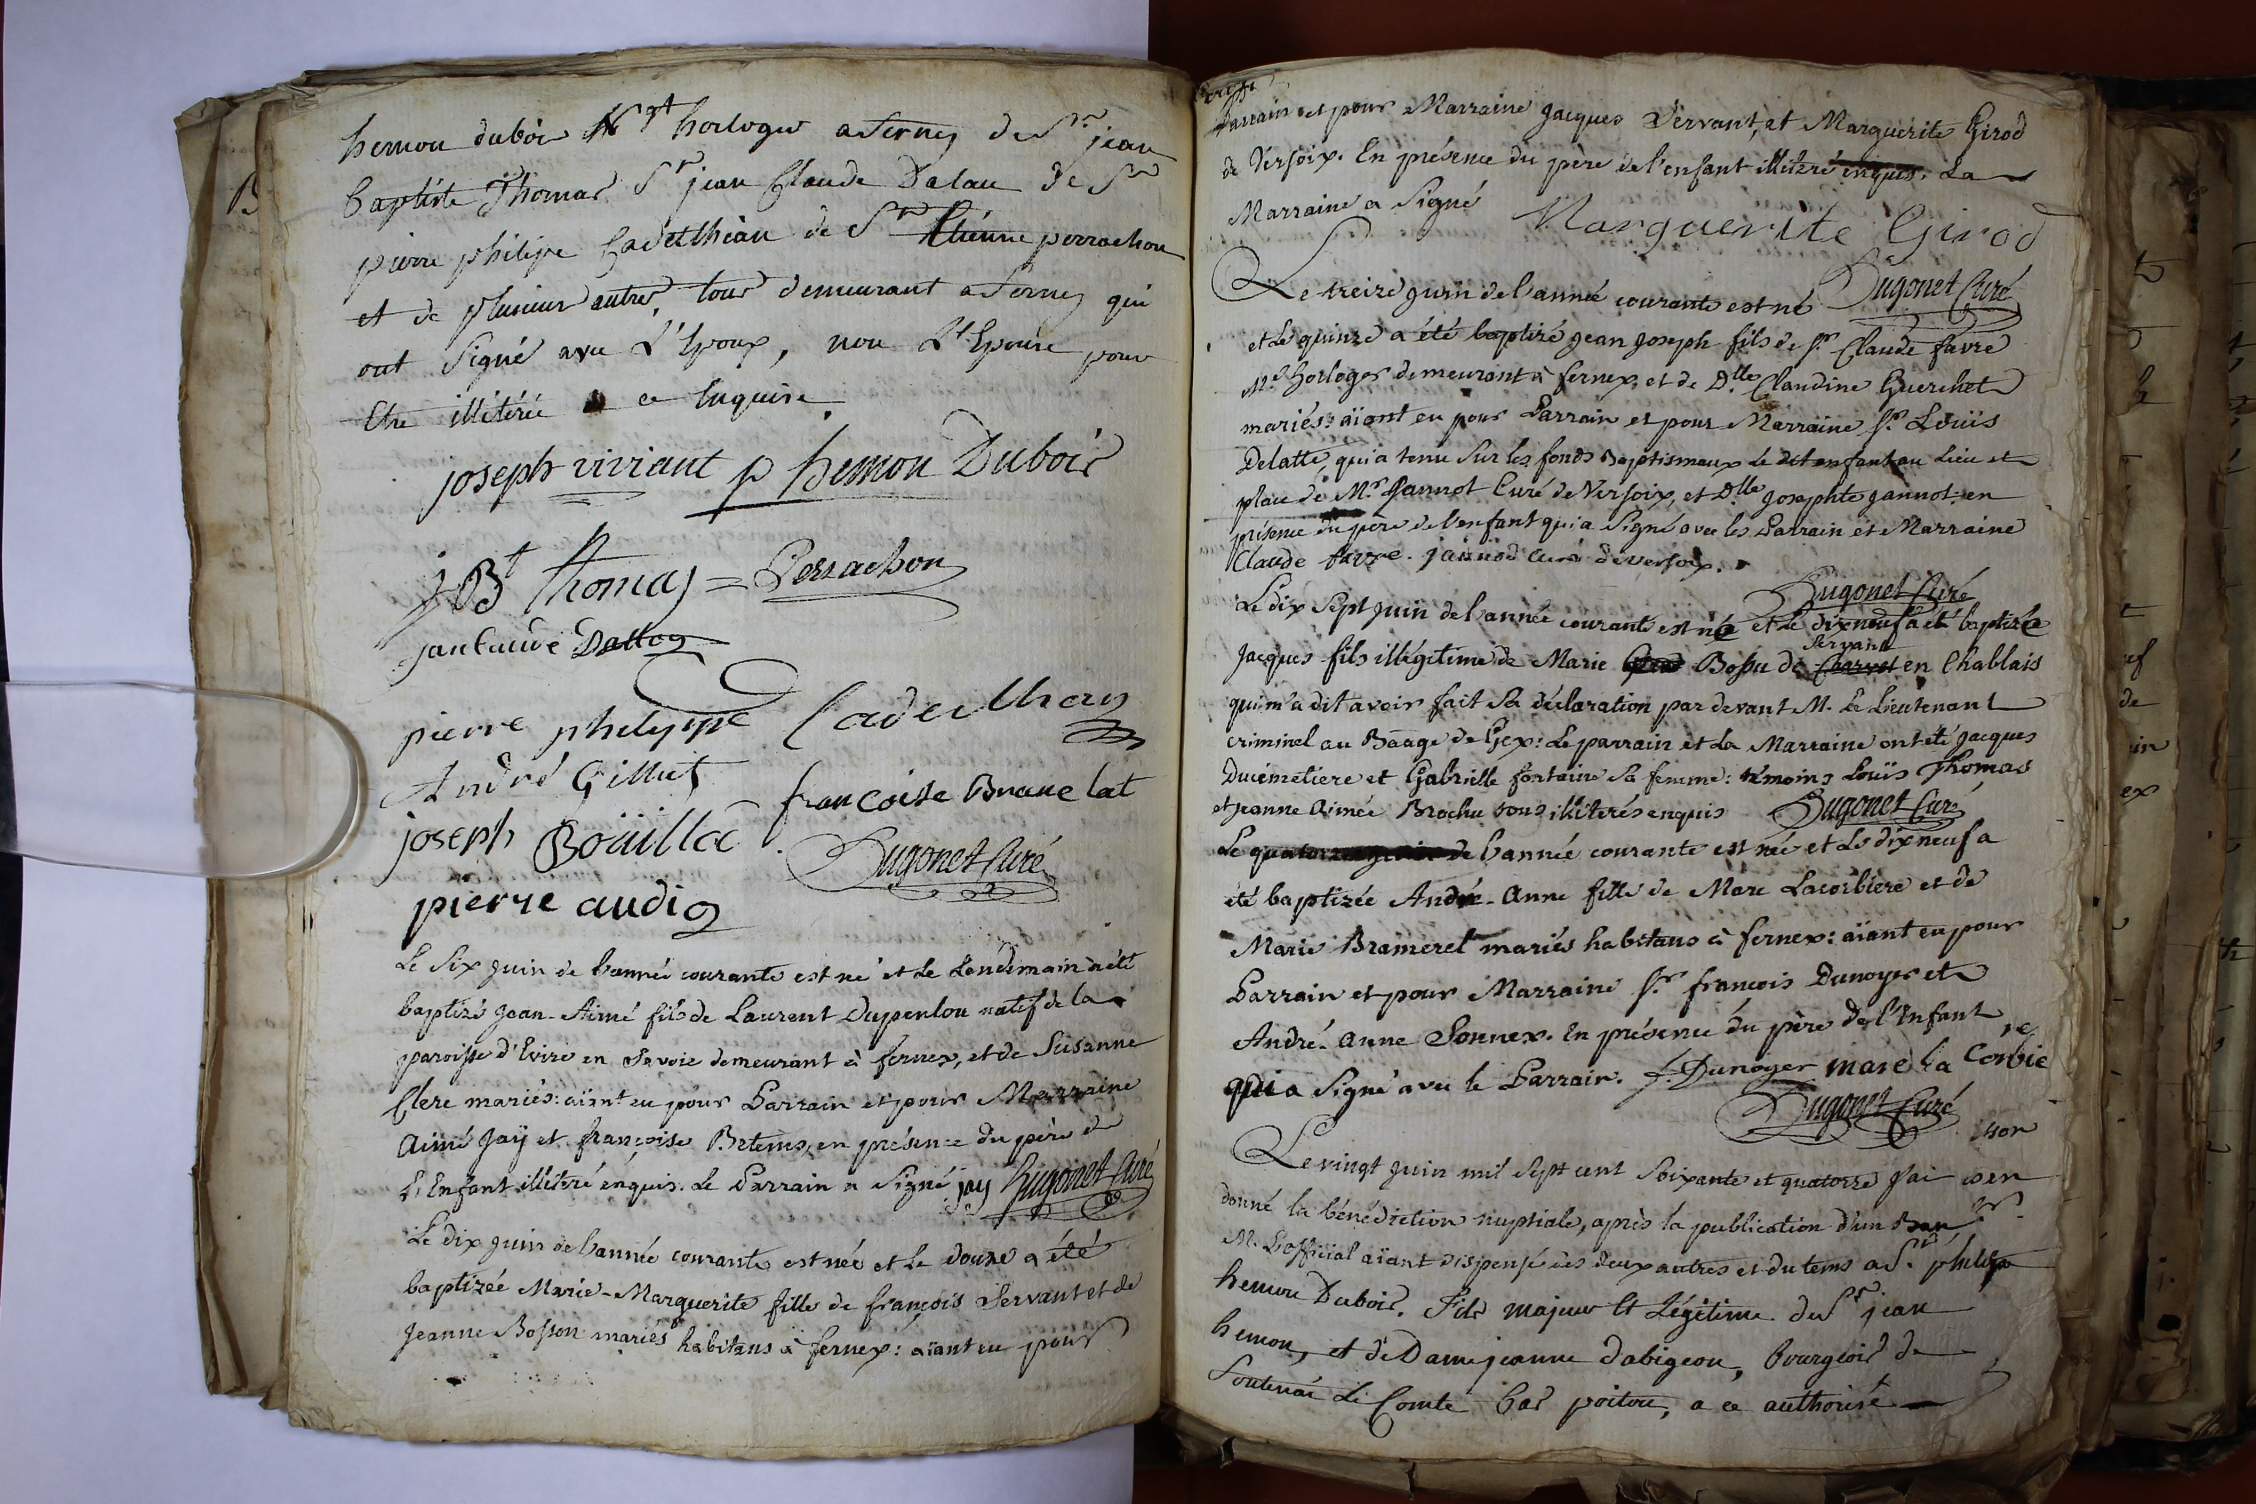 hemon dubois horloger a ferney de Sr jean
baptiste Thomas Sr jean Claude Dalau de Sr
pierre philipe Cadeilhean de Sr perrachon
et de plusieur autres tous demeurant a ferney qui
ont signé avec L'Epoux, non L'Epouse pour
Etre illitérée a ce Enquise.
joseph viviant p hemon Dubois
J Bt Thomas = Perrachon
jan Claude Dallog
pierre philyppe Cadeilhan
André Gillut
francoise Brane lat
joseph Boüillé
Hugonet Curé
pierre audig
Le Six juin de l'année courante est né et le Lendemain a été
baptizé Jean-Aimé fils de Laurent Dupenlou natif de la
paroisse d'Evire en Savoie demeurant à fernex, et de Susanne
Clere mariés: aïant eu pour Parrain et pour Marraine
Aimé Jaÿ et françoise Betems, en présence du père de
l'Enfant illitéré enquis. Le Parrain a Signé jay Hugonet Curé
Le dix juin de l'année courante est née et le douze a été
baptizée Marie-Marguerite fille de françois Servant et de
Jeanne Bosson mariés habitans à fernex: aïant eu pour
Parrain et pour Marraine Jacques Servant, et Marguerite Girod
de Versoix. En présence du père de l'enfant illitéré enquis. La
Marraine a Signé
Marguerite Girod
Le treize juin de l'année courante est né
Hugonet Curé
et Le quinze a été baptizé Jean Joseph fils de Sr Claude favre
Me horloger demeurant à fernex, et de Dlle Claudine Guerchet
mariés: aïant eu pour Parrain et pour Marraine Sr Loüis
Delatte, qui a tenu Sur les fonds Baptismaux Le dit enfant au Lieu et
place de Mr Jannot Curé de Versoix, et Dlle Josephte Jannot: en
présence du père de l'enfant qui a Signé avec les Parrain et Marraine
Claude favre. jannod curé de versoix.
Hugonet Curé
Le dix Sept juin de l'année courante est né et Le dixneuf a été baptizé
Servant
Jacques fils illégitime de Marie Bossu de en Chablais
qui m'a dit avoir fait Sa déclaration par devant M. Le Lieutenant
criminel au Bâage de Gex: Le parrain et La Marraine ont été Jacques
Ducimetiere et Gabrielle fontaine Sa femme: témoins Loüis Thomas
et Jeanne Aimée Brochu tous illitérés enquis
Hugonet Curé
Le quatorze juin de l'année courante est née et Le dixneuf a
été baptizée André-Anne fille de Marc Lacorbiere et de
Marie Bramerel mariés habitans à fernex: aïant eu pour
Parrain et pour Marraine Sr françois Dunoyer et
André-Anne Sonnex. En présence du père de l'Enfant
qui a Signé avec le Parrain. f. Dunoyer marc la Corbie
re
Hugonet Curé
Le vingt juin mil Sept cent Soixante et quatorze j'ai
donné la bénédiction nuptiale, après la publication d'un Ban
M. L'official aïant dispensé des deux autres et du tems a Sr. philipe
hemon Dubois. Fils majeur et Légitime du Sr jean
hemon, et de Dame jeanne dabigeon, bourgeois de
Le Comte bas poitou, a ce authorisé